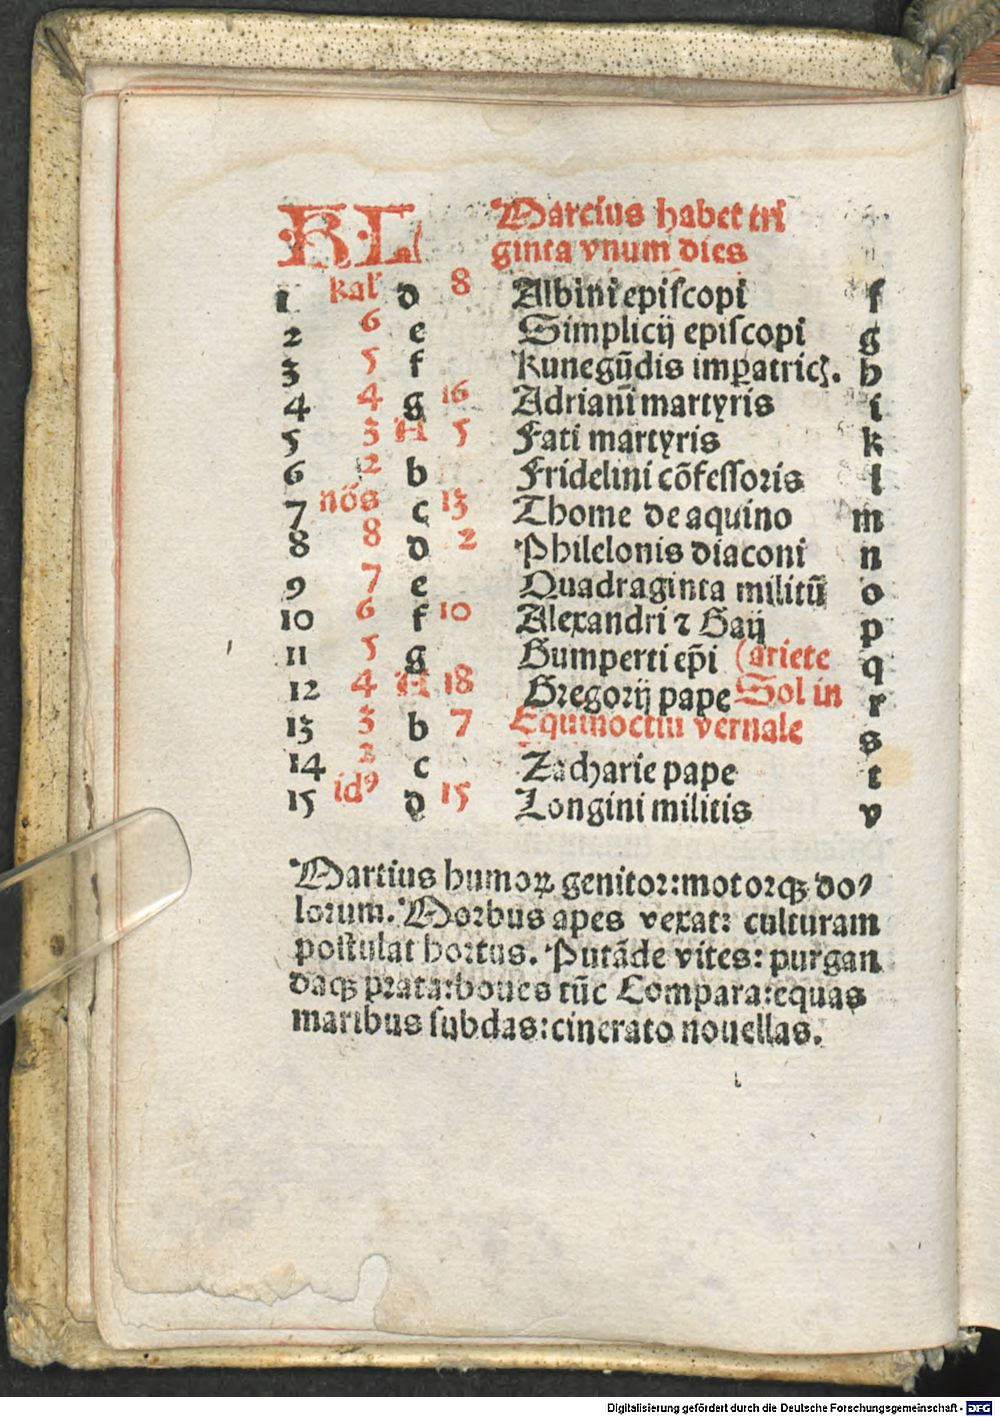 KL Marcius habet tri
ginta vnum dies
1 kal' d 8 Albini episcopi f
2 6 e Simplicij episcopi g
3 5 f Kunegūdis imꝑatricꝫ. h
4 4 g 16 Adriani martyris i
5 3 A 5 Fati martyris k
6 2 b Fridelini cōfessoris l
7 nōs c 13 Thome de aquino m
8 8 d 2 Philelonis diaconi n
9 7 e Quadraginta militū o
10 6 f 10 Alexandri ⁊ Gaij p
11 5 g Gumperti ep̄i (ariete q
12 4 A 18 Gregorij pape Sol in r
13 3 b 7 Equinoctiū vernale s
14 2 c Zacharie pape t
15 idꝰ d 15 Longini militis v
Martius humoꝝ genitor: motorqꝫ do⸗
lorum. Morbus apes vexat: culturam
postulat hortus. Putāde vites: purgan
daqꝫ prata: boues tūc Compara: equas
maribus subdas: cinerato nouellas.
Digitalisierung gefördert durch die Deutsche Forschungsgemeinschaft - DFG